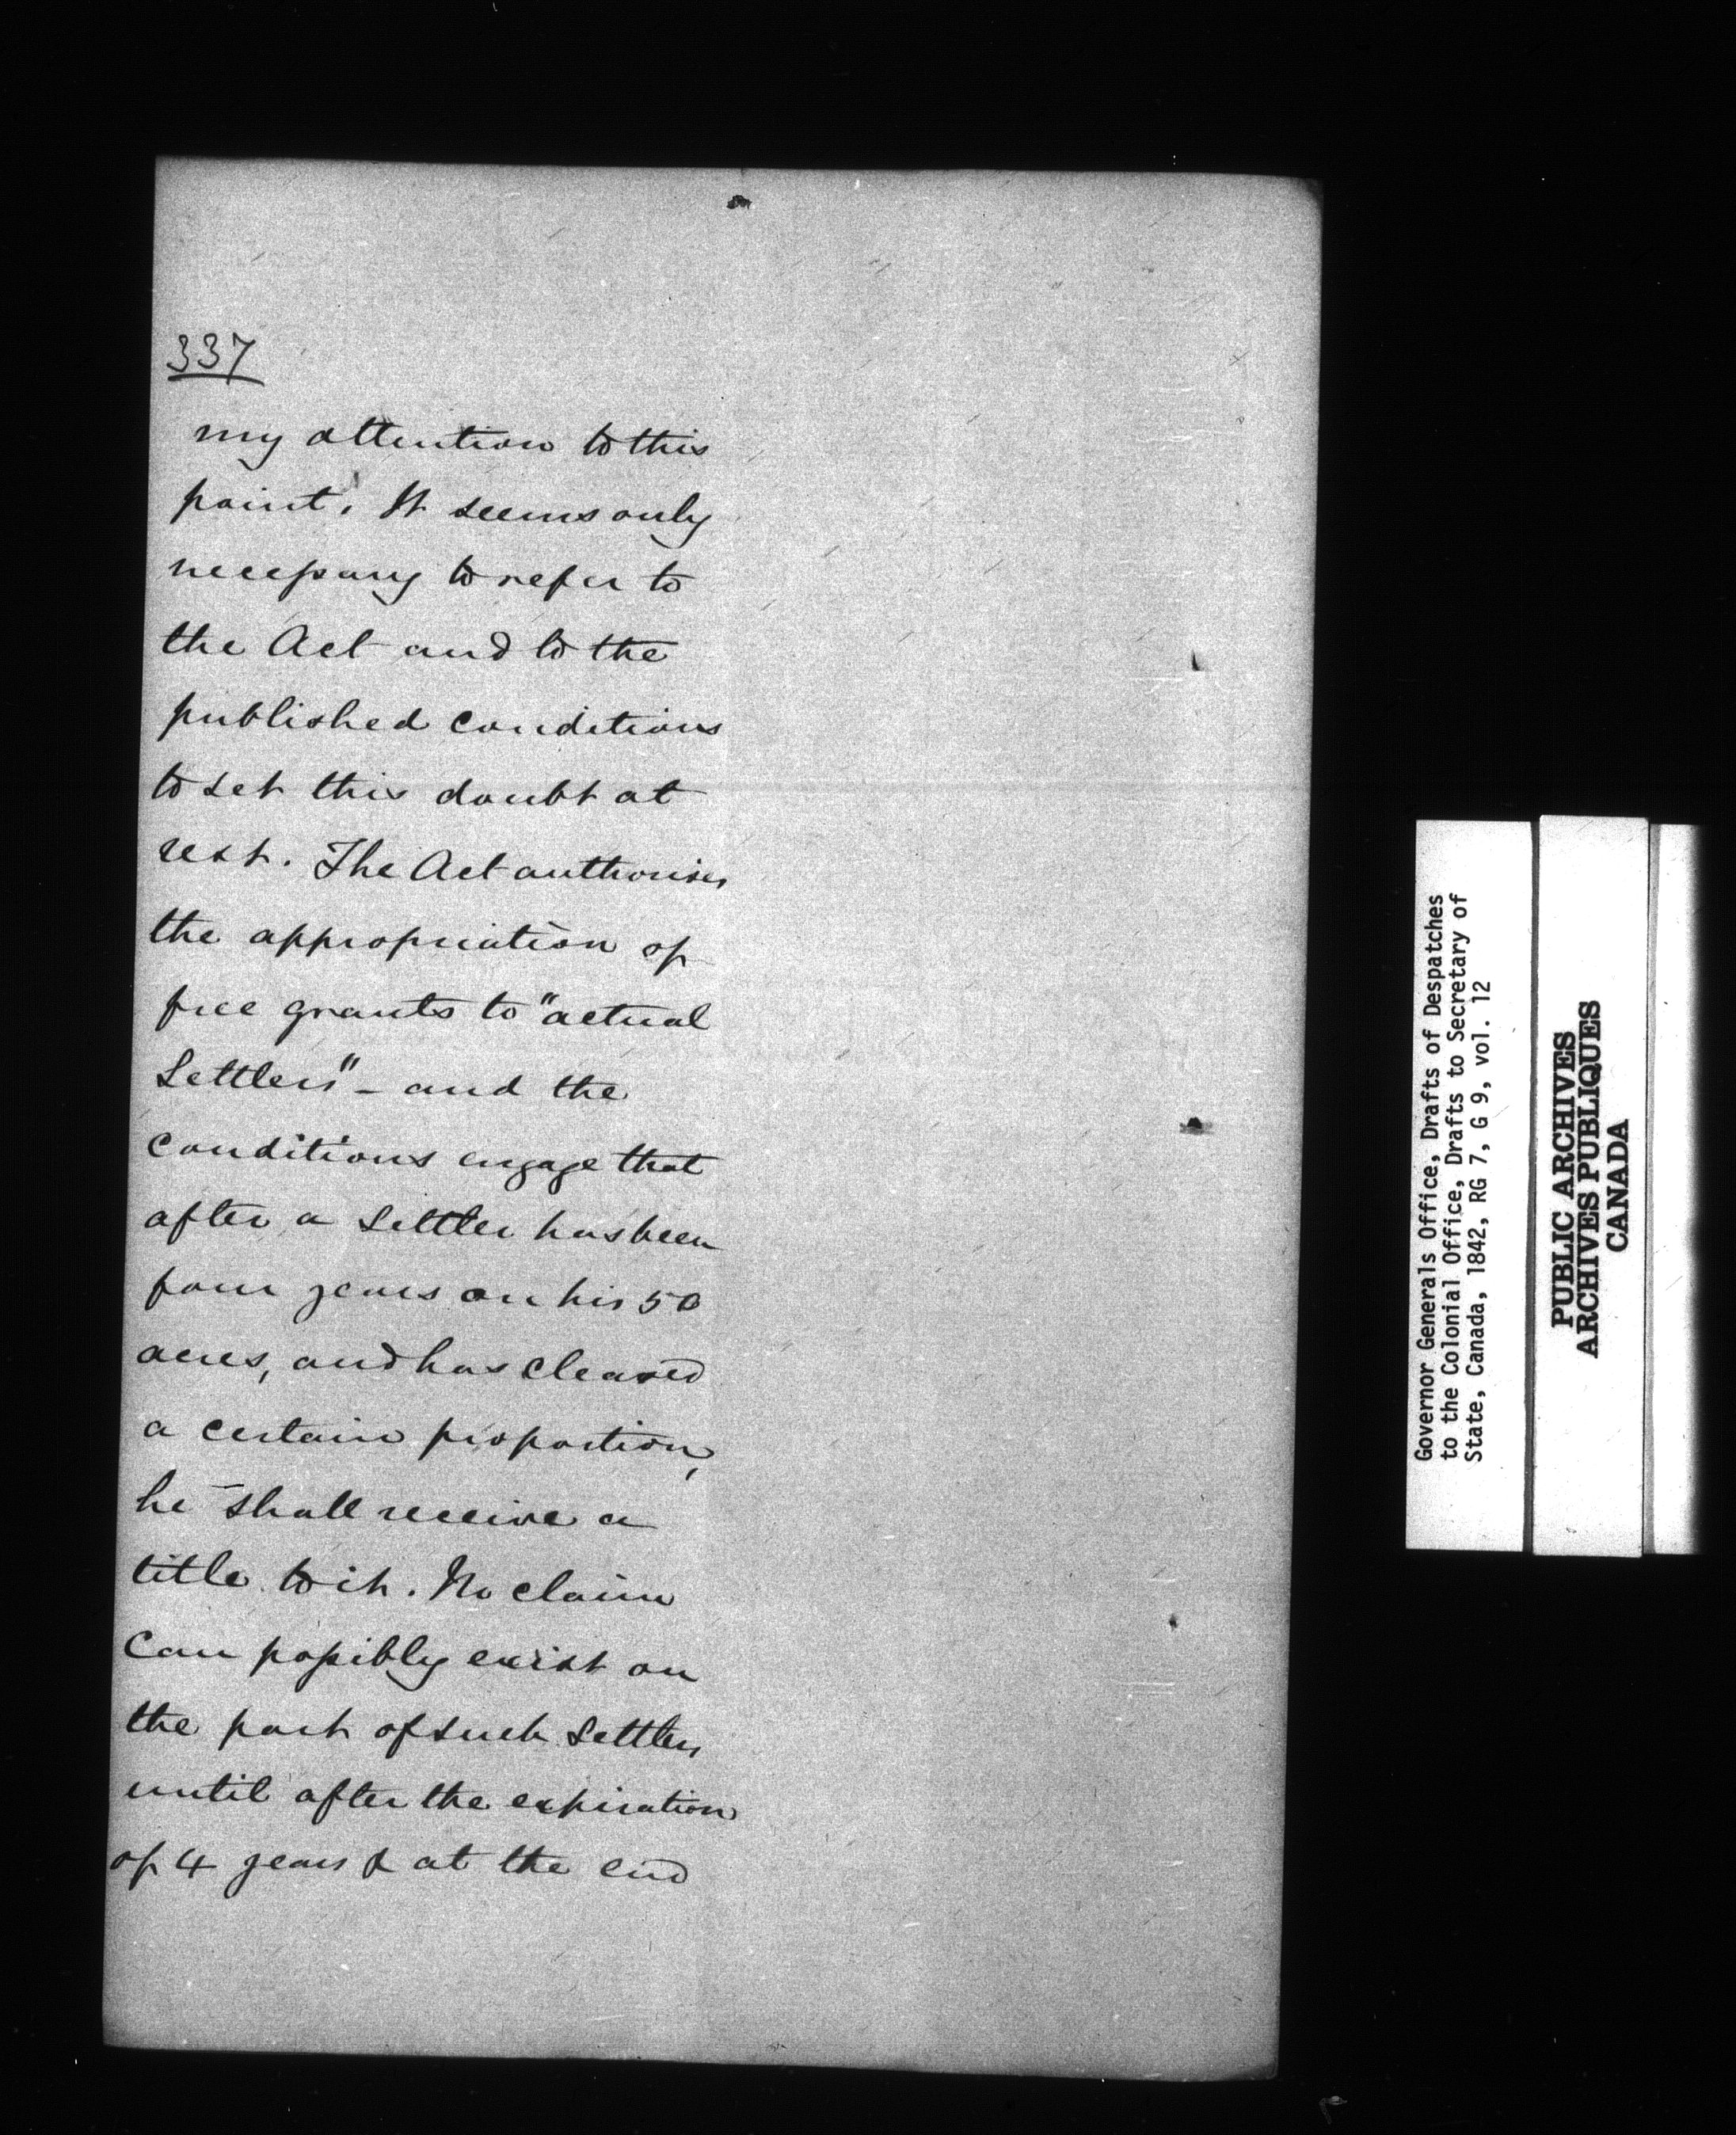 337
my attention to this
point. It seems only
necessary to refer to
the Act and to the
published conditions
to set this doubt at
rest. The Act authorises
the appropriation of
free grants to "actual
Settlers" - and the
conditions engage that
after a Settler has been
four years on his 50
acres, and has cleared
a certain proportion,
he shall receive a
title to it. No claim
can possibly exist on
the part of such Settlers
until after the expiration
of 4 years & at the end
Governor Generals Office, Drafts of Despatches
to the Colonial Office, Drafts to Secretary of
State, Canada, 1842, RG 7, G 9, vol. 12
PUBLIC ARCHIVES
ARCHIVES PUBLIQUES
CANADA